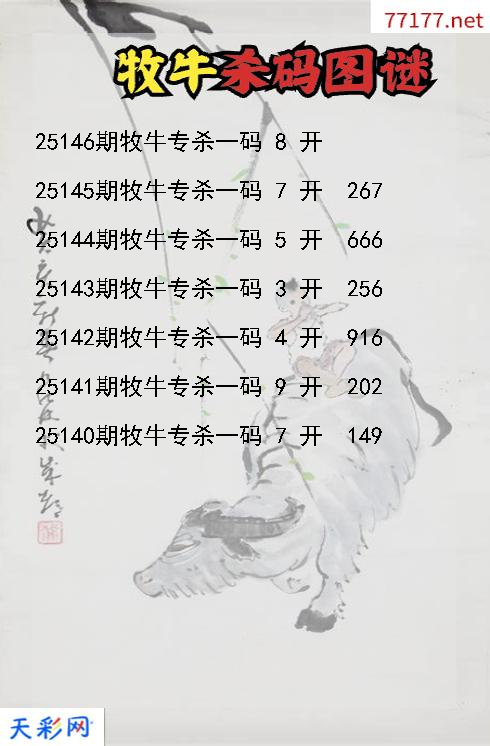 77177.net
牧牛杀码图谜
25146期牧牛专杀一码 8 开
25145期牧牛专杀一码 7 开 267
25144期牧牛专杀一码 5 开 666
25143期牧牛专杀一码 3 开 256
25142期牧牛专杀一码 4 开 916
25141期牧牛专杀一码 9 开 202
25140期牧牛专杀一码 7 开 149
天彩网